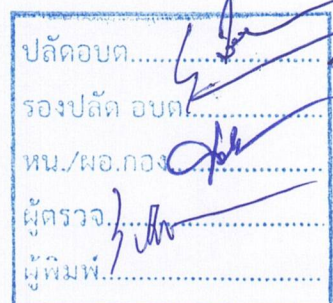 ปลัดอบต.....................
รองปลัด อบต................
หน./ผอ.กอง.................
ผู้ตรวจ......................
ผู้พิมพ์......................